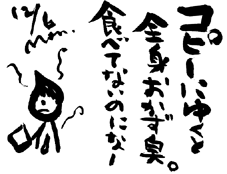 コピーにゆくと
全身おかず臭。
食べてないのになー
12/6
mon.